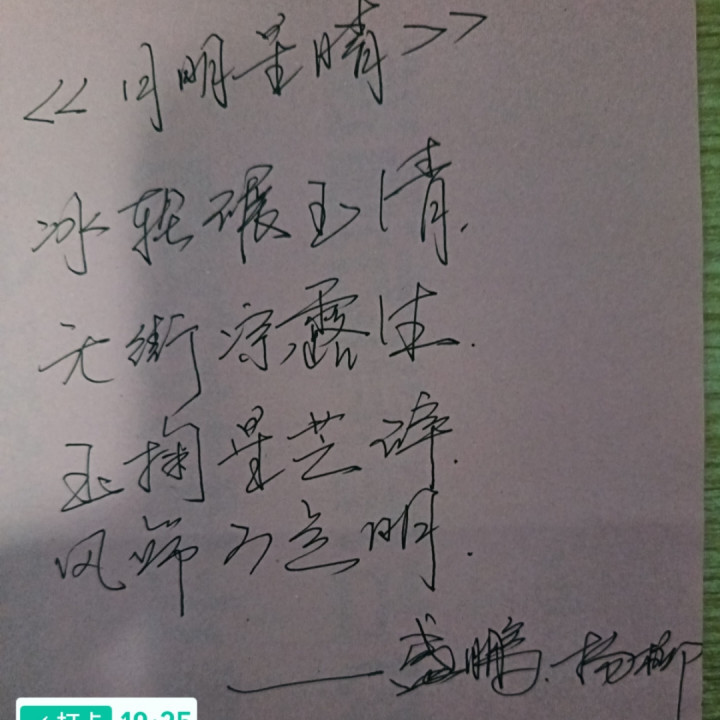 <<月明星晴>>
冰轮碾玉清.
天街凉露生.
玉掬星芒碎.
风筛万点明.
——盛鹏.杨柳
打卡 19:35